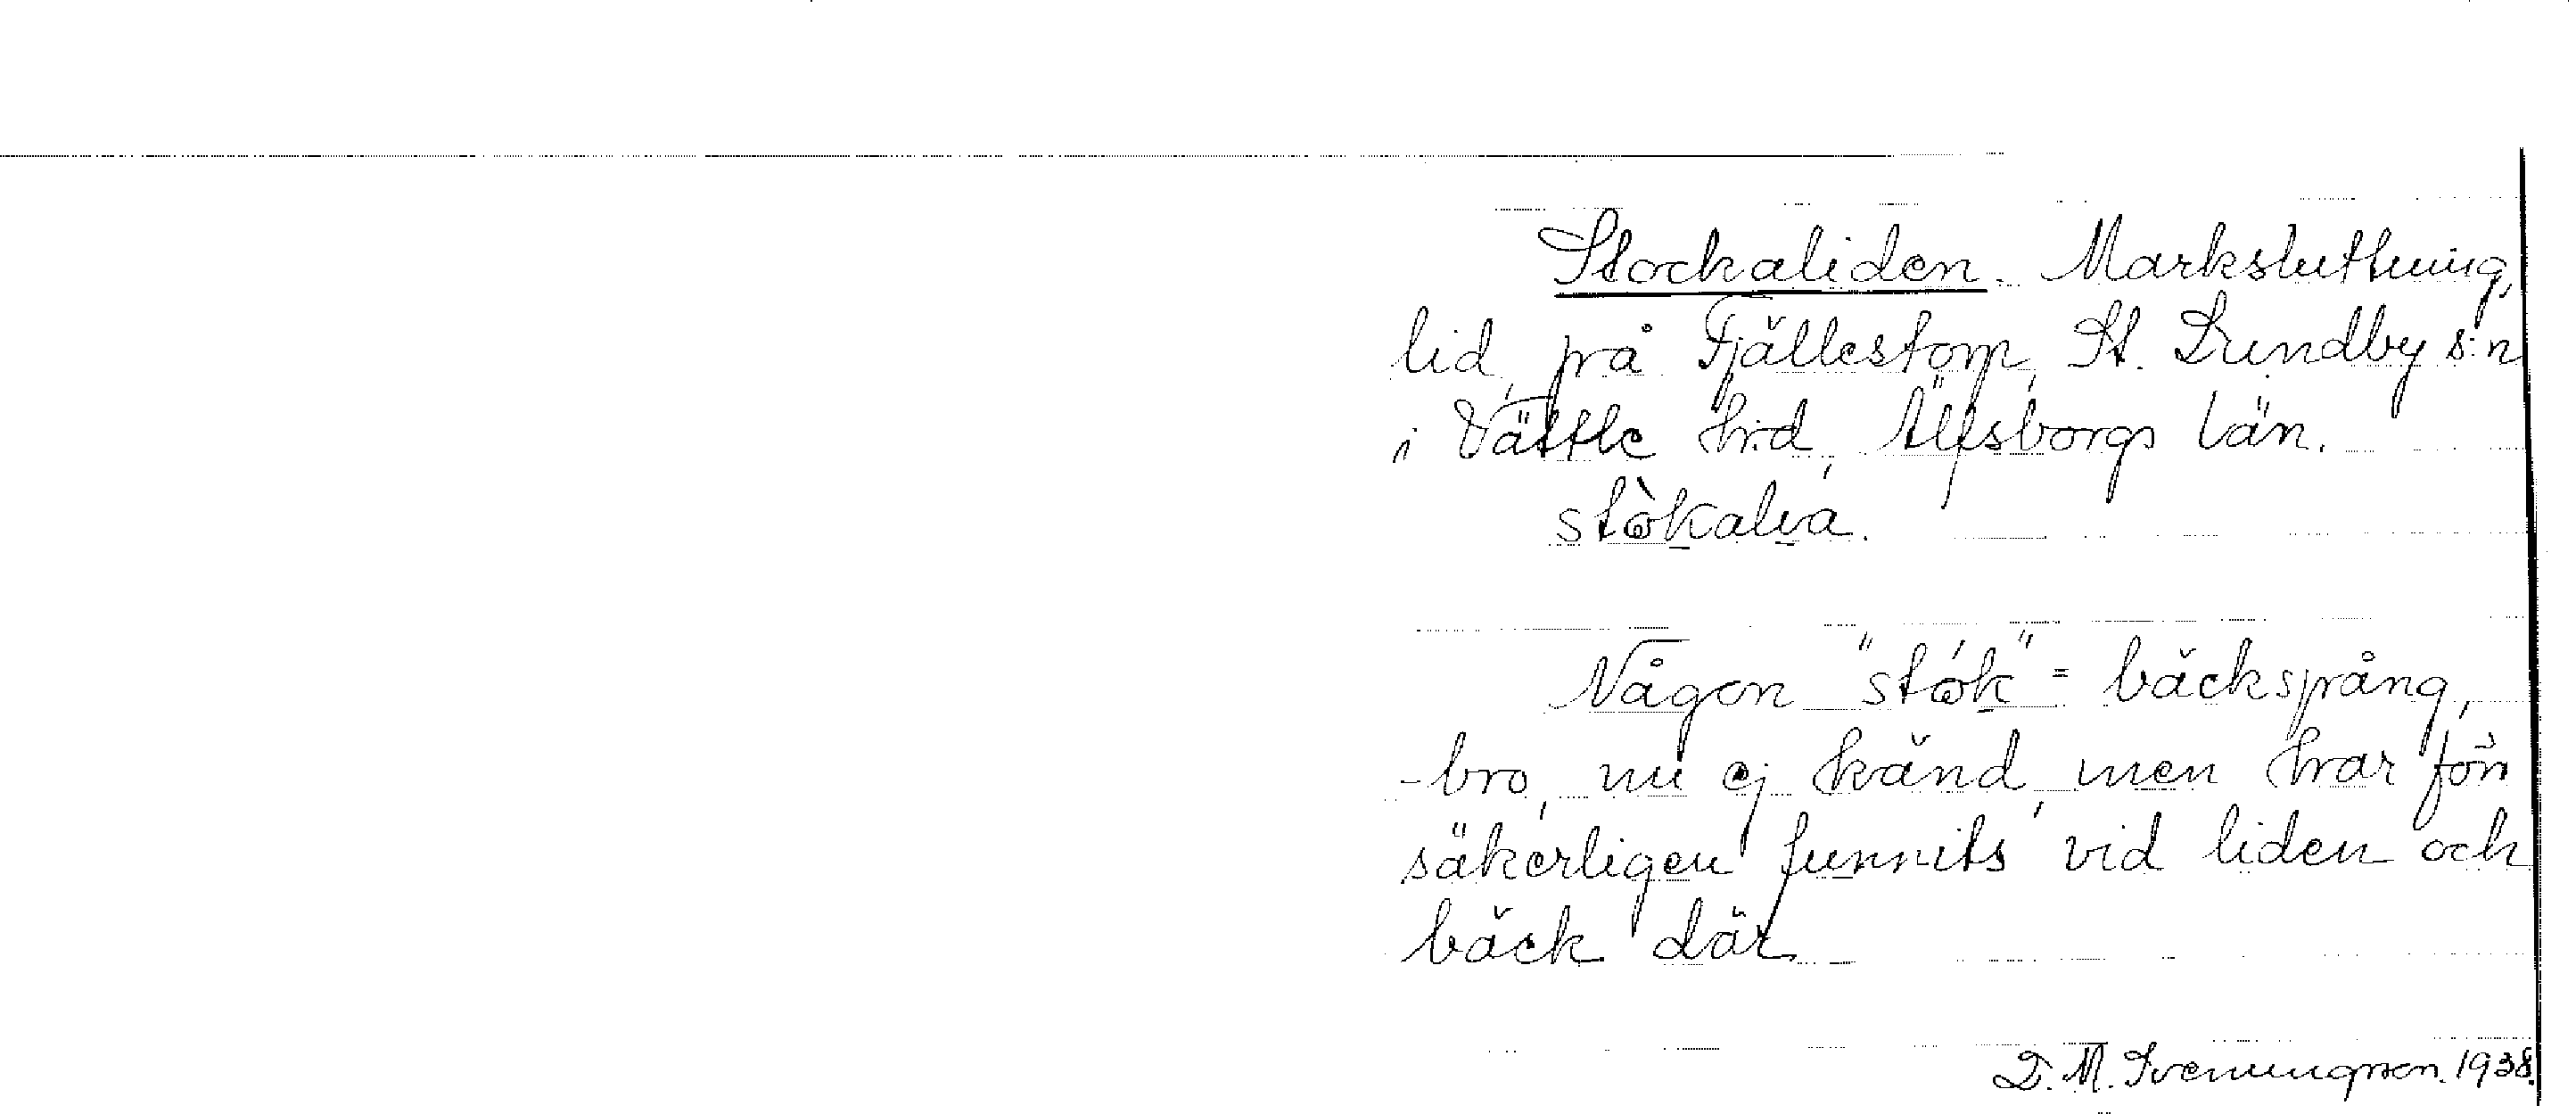 Stockaliden. Markslutlning,
lid, på Fjällestorp, St. Lundby s:n
i Vättle h:d, Älfsborgs län.
stɷ̀kalia.
Någon "stɷ́k" = bäckspång,
-bro, nu ej känd, men har förr
säkerligen funnits vid liden och
bäck där.
D. M. Sveningsson. 1938.